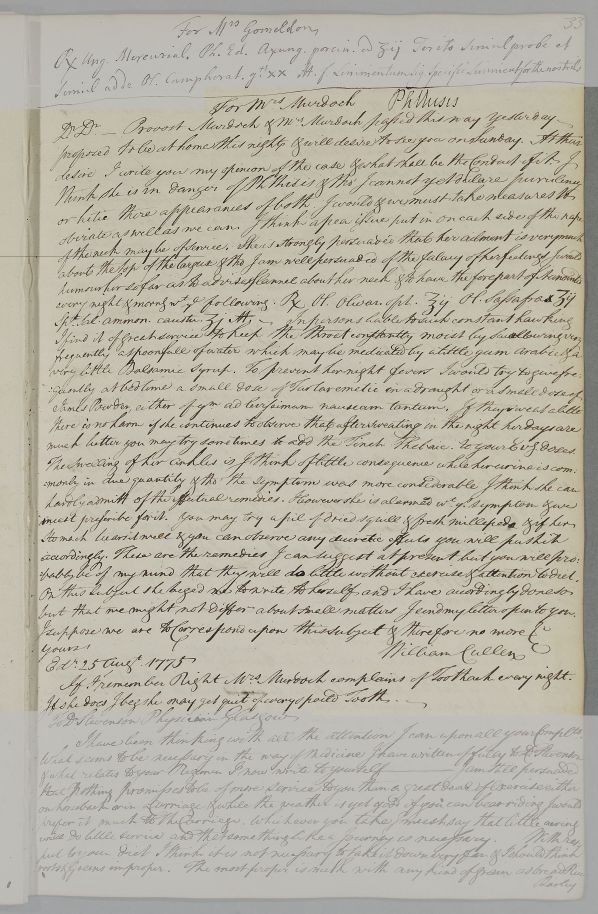 33
For Mrs Gomeldon
Rx Ung. Mercurial. Ph. Ed. Axung. porcin. a ʒij Terito simul probe et
simul adde Ol. Camphorat. gt. xx M. f. Linimentum. Sig Specific Liniment for the nostrils
For Mrs Murdoch Phthisis
Dr Dr — Provost Murdoch & Mrs Murdoch passed this way yesterday
proposed to be at home this night & will desire to see you on Sunday. At their
desire I write you my opinion of the case & what shall be the conduct of it. I
think she is in danger of Phthisis & tho' I cannot yet declare purulency
or hectic there appearances of both. I would & we must take measures to
obviate as well as we can. I think a pea issue put in on each side of the nape
of the neck may be of service. She is strongly persuaded that her ailment is very much
about the top of the larynx & tho I am well persuaded of the fallacy of her feelings I would
humour her so far as to advise flannel about her neck & to have the forepart of it anointed
every night & morng wt ye following. Rx Ol. Olivar. opt. ʒij Ol. Sassafras ʒij
Spt. vol. ammon. caustic ʒj M. — In persons liable to such constant hawking
I find it of great service to keep the throat constantly moist by swallowing very
frequently a spoonfull of water which may be medicated by a little gum arabic & a
very little Balsamic Syrup. To prevent her night fevers I would try to give fre-
quently at bedtime a small dose of Tartar emetic in a draught or a small dose of
James's Powder, either of ym ad levissimam nauseam tantum. If they sweat a little
there is no harm if she continues to observe that after sweating in the night her days are
much better you may try sometimes to add the Tinct Thebaic. to your Evg doses.
The swelling of her ankles is I think of little consequence while her urine is com-
monly in due quantity & tho' the symptom was more considerable I think she can
hardly admitt of the effectual remedies. However she is alarmed wt ye symptom & we
must prescribe for it. You may try a pill of dried squills & fresh millepeda & if her
stomach bears it well & you can observe any diuretic effects you will push it
accordingly. These are the remedies I can suggest at present but you will pro-
bably be of my mind that they will do little without exercise & attention to diet.
On this subject she begged me to write to herself and I have accordingly done so
but that we might not differ about small matters I send my letter open to you.
I suppose we are to Correspond upon this subject & therefore no more &c
yours
William Cullen
Edr. 25 Augt. 1775
If I remember Right Mrs Murdoch complains of Toothach every night.
If she does I beg she may get quit of every spoild Tooth. —
To Dr Stevenson Physician Glasgow
I have been thinking with all the attention I can upon all your Complts.
What seems to be necessary in the way of medicine I have written of fully to Dr Stevenson
& what relates to your Regimen I now write to yourself — I am still persuaded
that nothing promises to be of more service to you than a great deal of exercise either
on horseback or in Carriage & while the weather is yet good if you can bear riding I would
prefer it much to the Carriage. Whichever you take I must say that little airings
will do little service and that something like a Journey is necessary. With res-
pect to your diet. I think it is not necessary to take it down very far & I should think
roots & Greens improper. The most proper is milk with any kind of grain as bread Rice
Barley